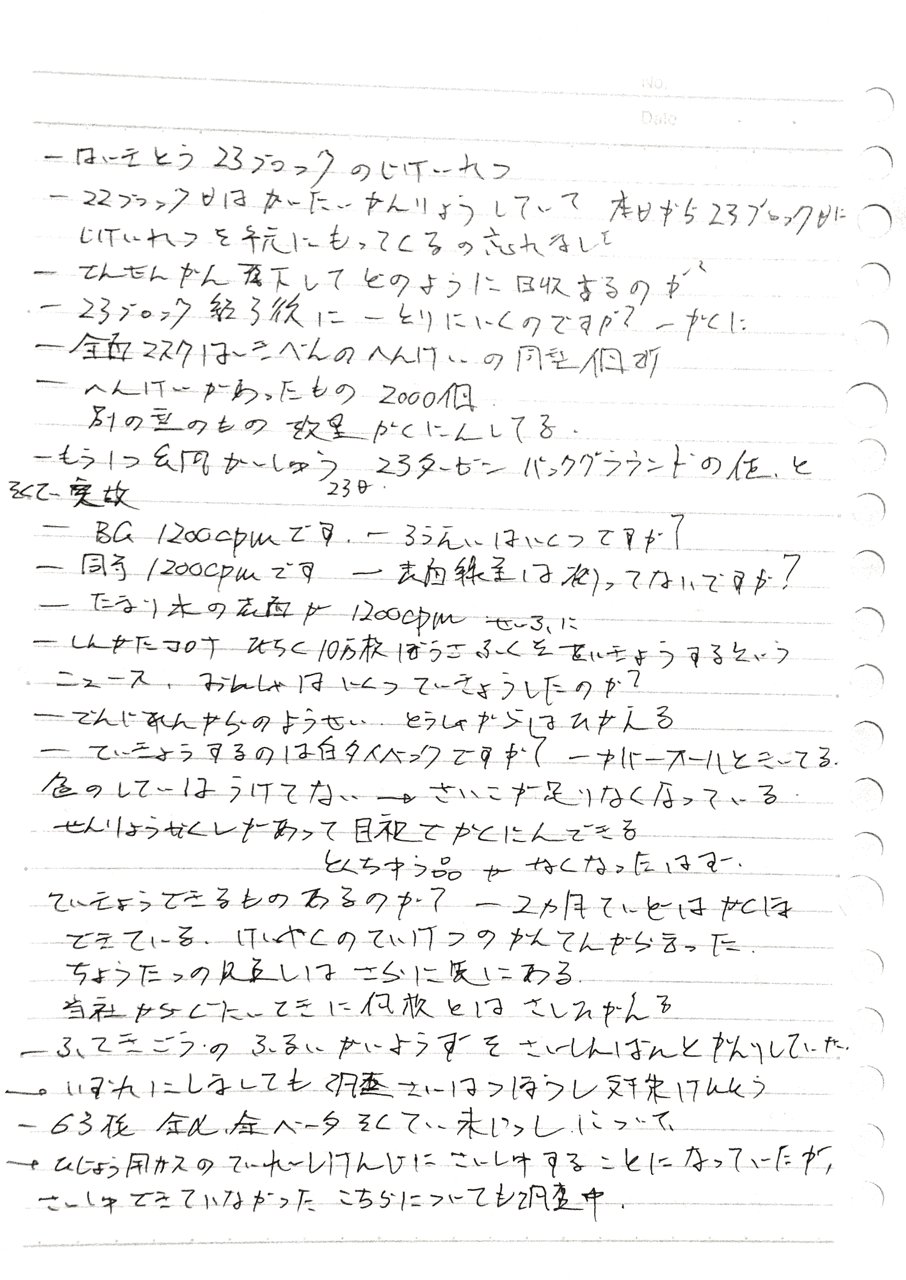 No.
Date
ーはいきとう 23ブロックのじけいれつ
ー22ブロック目はかいたいかんりょうしていて 本日から23ブロック目に
じけいれつを手元にもってくるの忘れまして
ーてんせんかん落下してどのように回収するのか?
ー23ブロック終了後に ーとりにいくのですか? ーかくに
ー全面マスクはいきべんのへんけいの同型個所
ーへんけいがあったもの 2000個
別の型のもの 数量かくにんしてる.
ーもう1つ 23タービン バックグラウンドの位 と
23日
そくてい実故
ー BG 1200cpmです. ーろうえいはいくつですか?
ー同等1200cpmです ー表面線量は測ってないですか?
ーたまり水の表面が1200cpm
ーしんがたコロナ ひらく10万枚ぼうごふくをていきょうするという
ニュース. おんしゃはいくつていきょうしたのか?
ーでんじれんからのようせい. とうしゃからはひかえる
ーていきょうするのは白タイベックですか? ーカバーオールときいてる.
色のしていはうけてない → ざいこが足りなくなっている.
せんりょうかくしがあって目視でかくにんできる
とくちゅう品がなくなったはず.
ていきょうできるものあるのか? ー2カ月ていどはかくほ
できている. けいやくのていけつのかんてんから言った.
ちょうたつの見直しはさらに先にある.
当社からぐたいてきに何枚とはさしひかえる
ーふてきごうのふるいかいようずをさいしんばんとかんりしていた.
→いずれにしましても調査さいはつぼうし対策けんとう
ー63号 全α.全ベータそくてい未じっし.について.
→ひじょう用ガスのていれいしけんじにさいしゅすることになっていたが,
さいしゅできていなかった こちらについても調査中.